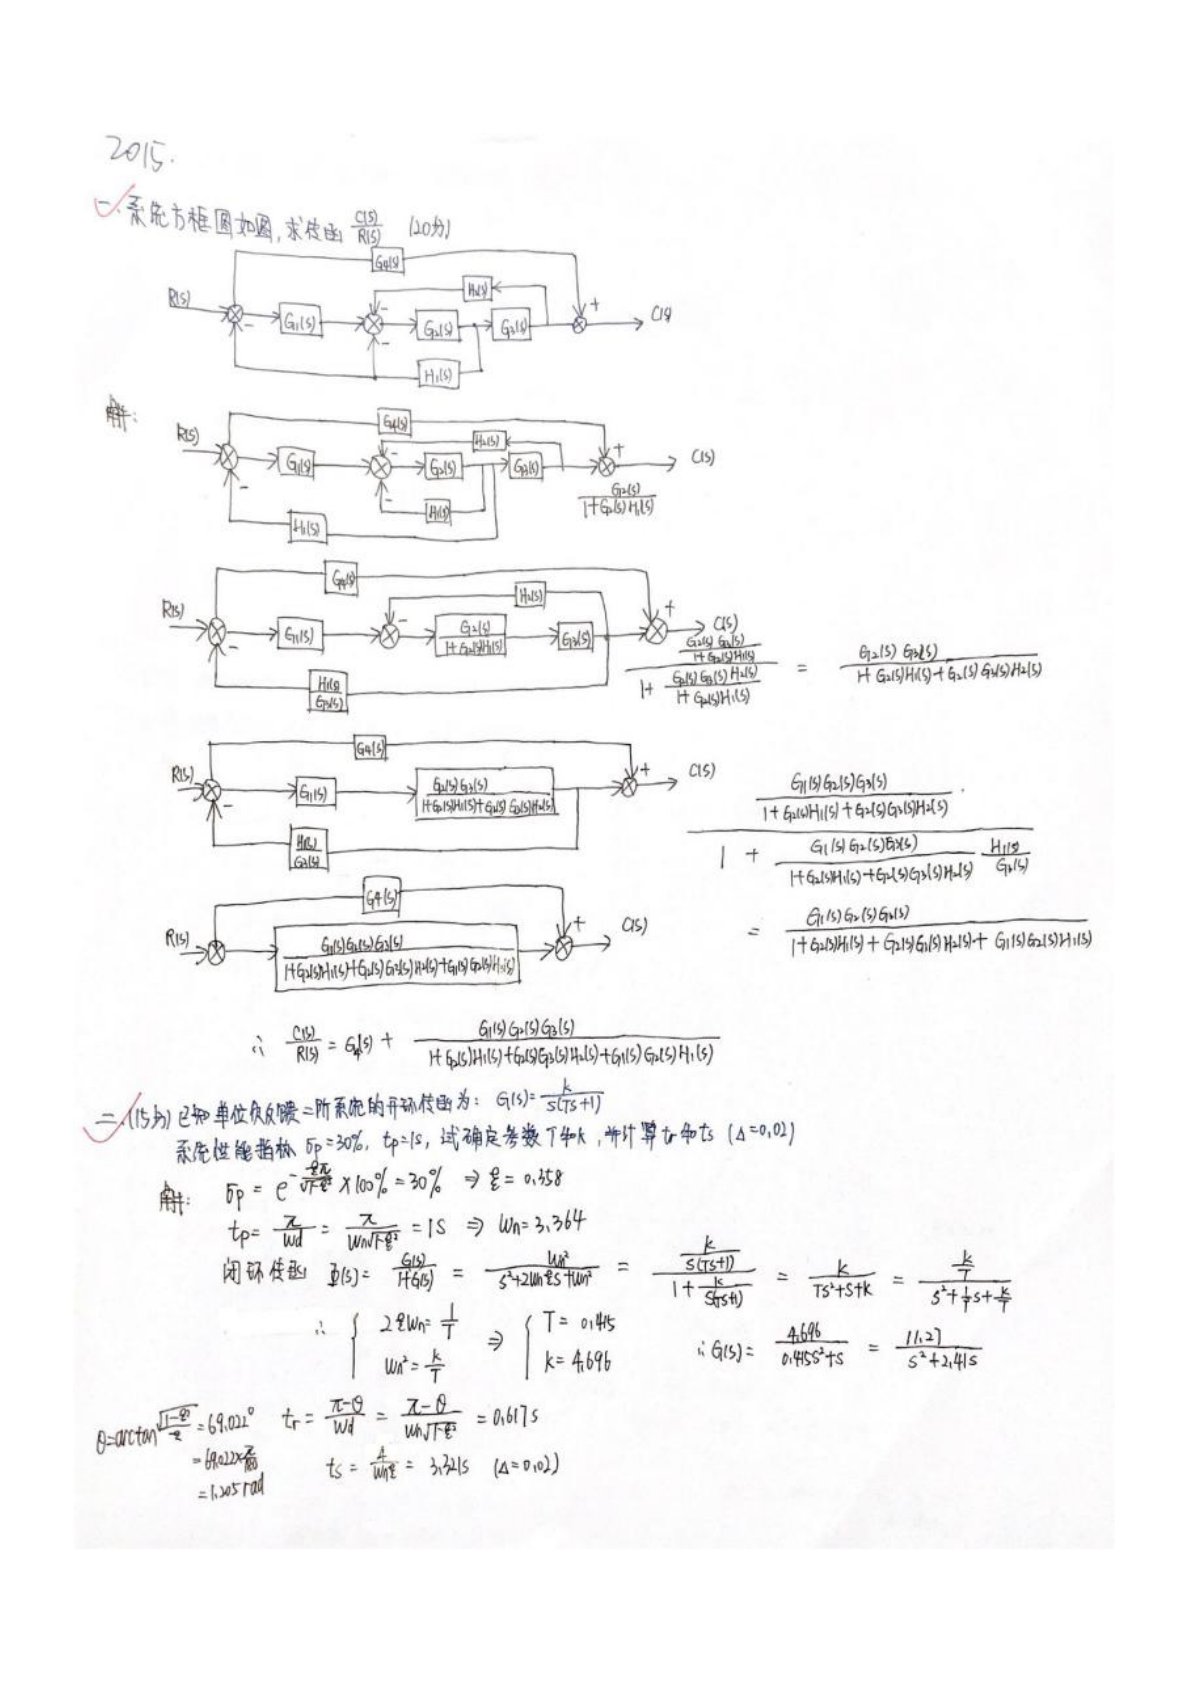 2015.
一.系统方框图如图,求传函 C(s)/R(s) (20分)
G4(s)
H2(s)
R(s) G1(s) G2(s) G3(s) C(s)
H1(s)
解:
G4(s)
R(s) H2(s)
G1(s) G2(s) G3(s) C(s)
H1(s) G2(s)/(1+G2(s)H1(s))
H1(s)
G4(s)
R(s) H2(s) C(s)
G1(s) G2(s)/(1+G2(s)H1(s)) G3(s)
H1(s)/G3(s)
(G2(s)G3(s)/(1+G2(s)H1(s)))/(1+G2(s)G3(s)H2(s)/(1+G2(s)H1(s))) = G2(s)G3(s)/(1+G2(s)H1(s)+G2(s)G3(s)H2(s))
G4(s)
R(s) C(s)
G1(s) G2(s)G3(s)/(1+G2(s)H1(s)+G2(s)G3(s)H2(s))
H1(s)/G3(s)
(G1(s)G2(s)G3(s)/(1+G2(s)H1(s)+G2(s)G3(s)H2(s)))/(1+G1(s)G2(s)G3(s)/(1+G2(s)H1(s)+G2(s)G3(s)H2(s)) H1(s)/G3(s))
G4(s)
R(s) C(s)
G1(s)G2(s)G3(s)/(1+G2(s)H1(s)+G2(s)G3(s)H2(s)+G1(s)G2(s)H1(s))
= G1(s)G2(s)G3(s)/(1+G2(s)H1(s)+G2(s)G3(s)H2(s)+G1(s)G2(s)H1(s))
∴ C(s)/R(s) = G4(s) + G1(s)G2(s)G3(s)/(1+G2(s)H1(s)+G2(s)G3(s)H2(s)+G1(s)G2(s)H1(s))
二.(15分)已知单位负反馈二阶系统的开环传函为: G(s)= k/(s(Ts+1))
系统性能指标 σp=30%, tp=1s, 试确定参数T和k, 并计算tr和ts (Δ=0.02)
解: σp = e^(-ξπ/√(1-ξ²)) ×100% = 30% ⇒ ξ = 0.358
tp = π/ωd = π/(ωn√(1-ξ²)) = 1s ⇒ ωn = 3.364
闭环传函 Φ(s) = G(s)/(1+G(s)) = ωn²/(s²+2ωnξs+ωn²) = (k/(s(Ts+1)))/(1+k/(s(Ts+1))) = k/(Ts²+s+k) = (k/T)/(s²+(1/T)s+k/T)
∴ { 2ξωn = 1/T ⇒ { T = 0.415
ωn² = k/T k = 4.696
∴ G(s) = 4.696/(0.415s²+s) = 11.27/(s²+2.41s)
θ=arctan √(1-ξ²)/ξ = 69.022° tr = (π-θ)/ωd = (π-θ)/(ωn√(1-ξ²)) = 0.617s
= 69.022×π/180 ts = 4/(ωnξ) = 3.321s (Δ=0.02)
= 1.205 rad